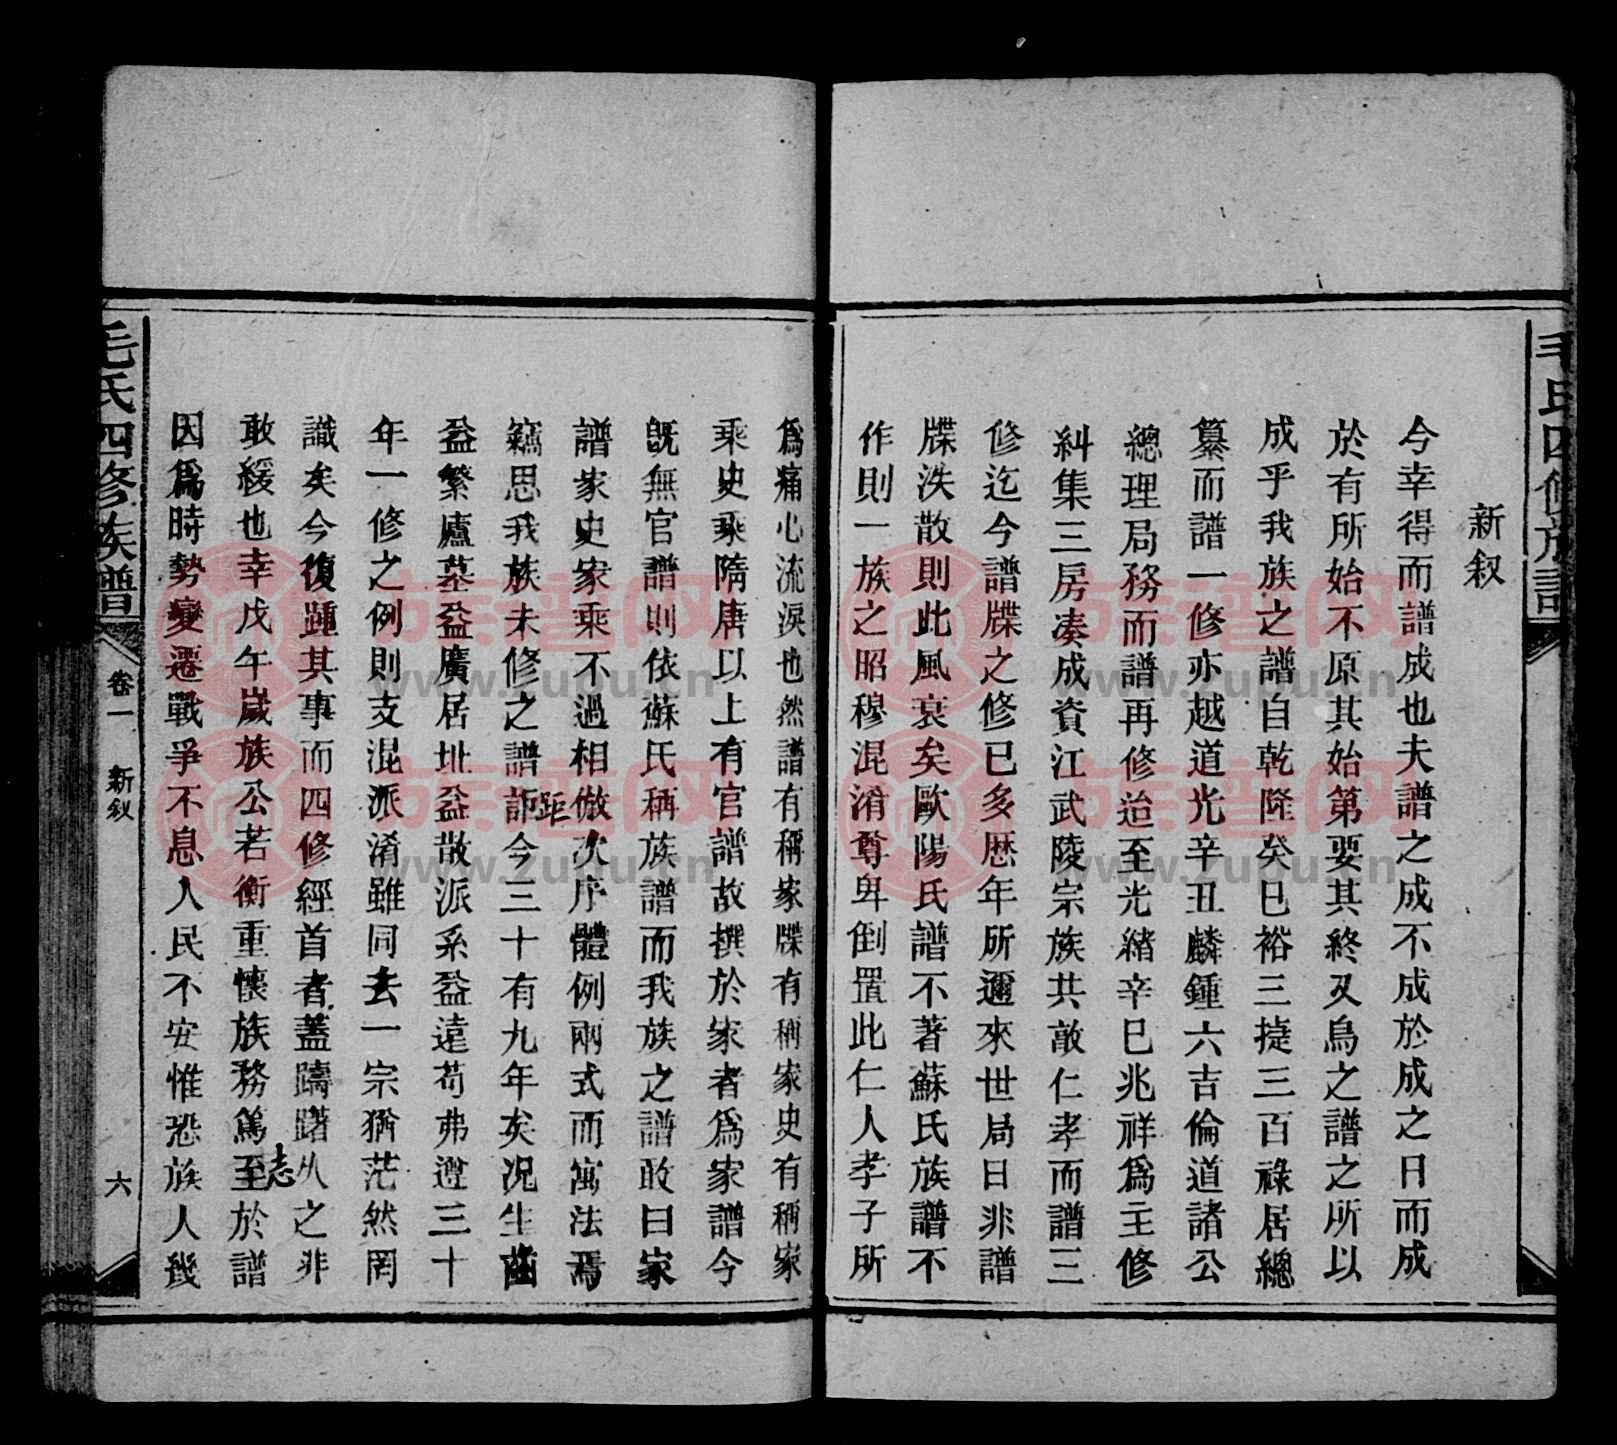 毛氏四修族譜
新叙
今幸得而譜成也夫譜之成不成於成之日而成
於有所始不原其始第要其終又烏之譜之所以
成乎我族之譜自乾隆癸巳裕三㨗三百祿居總
纂而譜一修亦越道光辛丑麟鍾六吉倫道諸公
總理局務而譜再修迨至光緒辛巳兆祥爲主修
糾集三房凑成資江武陵宗族共敵仁孝而譜三
修迄今譜牒之修已多歷年所邇來世局日非譜
牒泆散則此風衰矣歐陽氏譜不著蘇氏族譜不
作則一族之昭穆混淆尊卑倒置此仁人孝子所
爲痛心流淚也然譜有稱家牒有稱家史有稱家
乘史乘隋唐以上有官譜故撰於家者爲家譜今
既無官譜則依蘇氏稱族譜而我族之譜敢曰家
譜家史家乘不過相倣次序體例兩式而寓法焉
竊思我族未修之譜詎今三十有九年矣况生齒
距
益繁廬墓益廣居址益散派系益遠苟弗遵三十
年一修之例則支混派淆雖同去一宗猶茫然罔
識矣今復踵其事而四修經首者蓋躊躇久之非
敢緩也幸戊午嵗族公若衡重懷族務篤至於譜
志
因爲時勢變遷戰爭不息人民不安惟恐族人幾
毛氏四修族譜
卷一
新叙
六
族譜网
www.zupu.cn
族譜网
www.zupu.cn
族譜网
www.zupu.cn
族譜网
www.zupu.cn